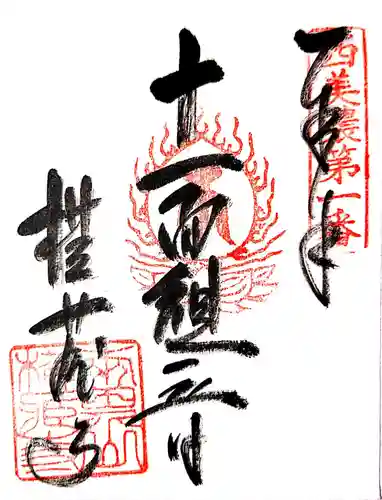 西美濃第一番
奉拝
十一面観世音
横蔵寺